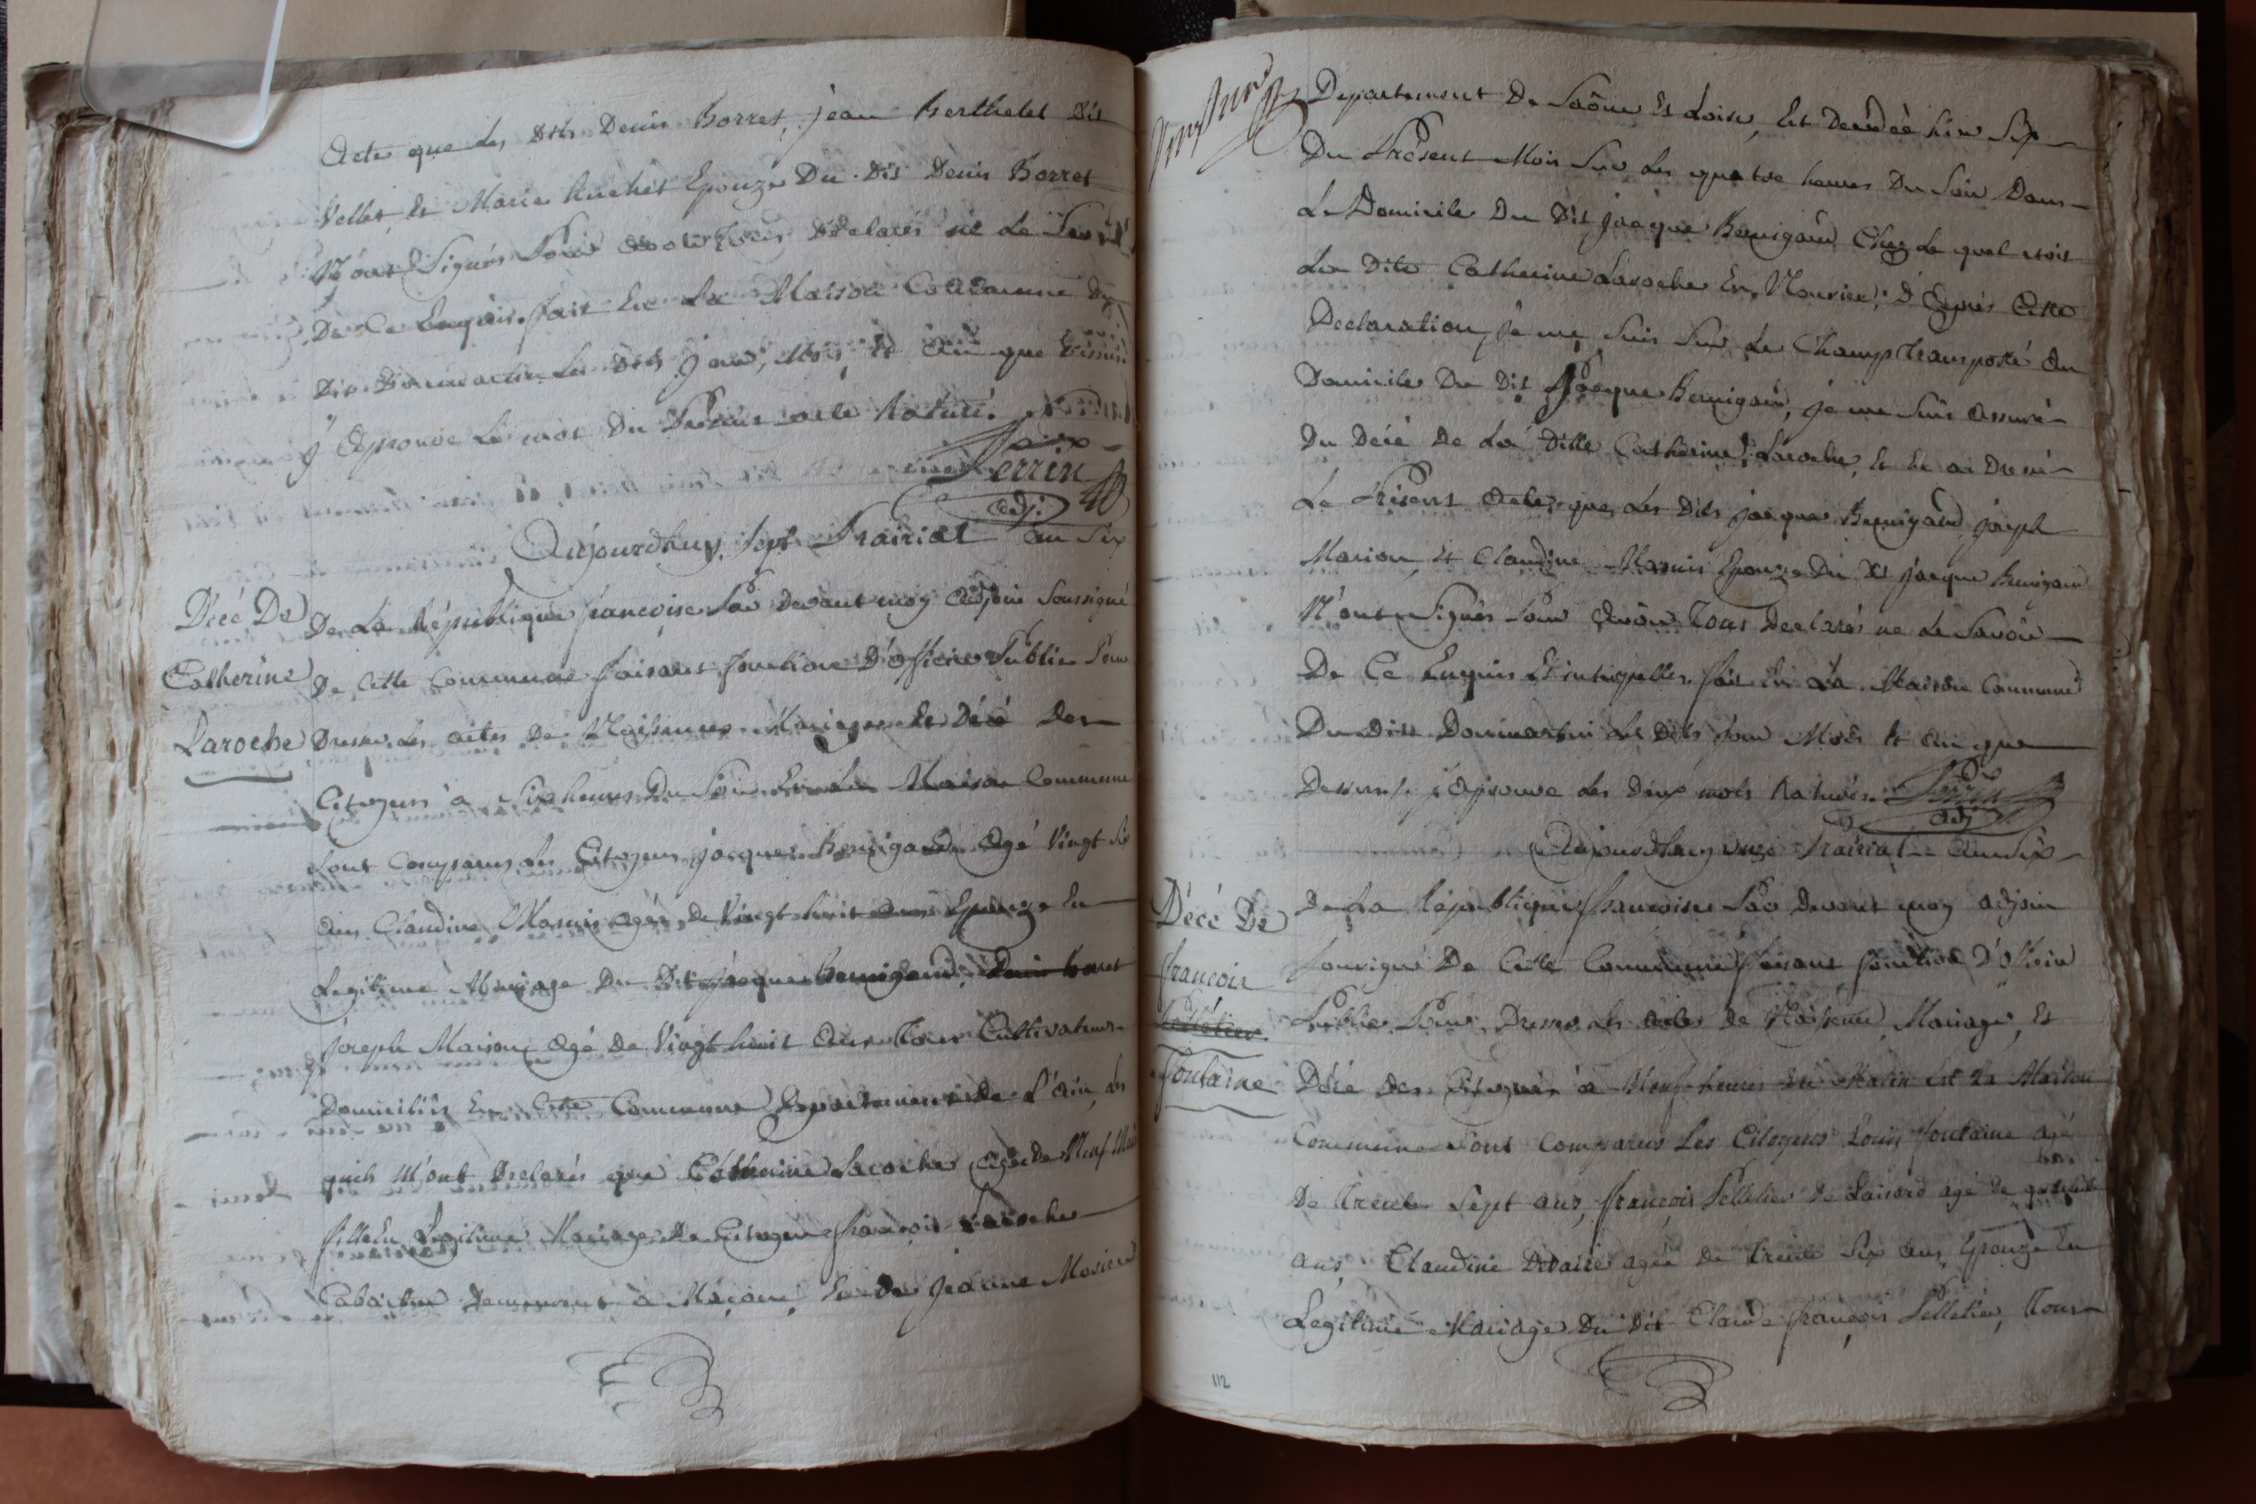 Acte que les dits Denis Borret, jean Berthelet dit
Vellet, et Marie Huchet Epouze Du dit Denis Borret
N'ont Signés Pour avoir tous Déclarés ne Le Savoir
De Ce Enquis. fait En La Maison Commune Du
Dit Dommartin Les dits jour, Mois, et an que dessus
j'approuve Le mot Du Présent acte Raturé.
Perrin
adj.
Aujourdhuy Sept Prairial an Six
Décé De
Catherine
Laroche
De La République françoise Par devant moy adjoin Soussigné
De Cette Commune faisant fonction D'officier Public Pour
Dresser Les actes De Naissances Mariages et Décé des
Citoyens a Six heures Du Soir En La Maison Commune
Sont Comparus Les Citoyens jacques Bernigaud Agé Vingt Six
ans Claudine Mamis agée de Vingt huit ans Epouze En
Legitime Mariage Du Dit jacque Bernigaud, Denis Borret
joseph Marion, agé De Vingt huit ans Tous Cultivateurs
Domiciliés En Cette Commune Département De L'ain, Les
quels M'ont Declarés que Catherine Laroche agée de Neuf Mois
fille En Legitime Mariage De Citoyen françois Laroche
Cabartier Demeurant à Mâcon, Et de jeanne Mosier
Departement De Saône Et Loire, Est Décédée hier Six
Du Présent Mois Sur Les quatre heures Du Soir Dans
Le Domicile Du Dit jacque Bernigaud Chez Le quel etoit
La Dite Catherine Laroche En Nourice, D'après Cette
Declaration, je me Suis Sur Le Champ Transporté Au
Domicile Du Dit Jacque Bernigaud, je me Suis assuré
Du Décé De La Ditte Catherine Laroche, Et En ai Dressé
Le Présent Acte, que Les Dits jacque Bernigaud joseph
Marion, Et Claudine Mamis Epouze Du Dit jacque Bernigaud
N'ont Signés Pour Avoir Tous Declarés ne Le Savoir
De Ce Enquis Et interpellés. fait En La Maison Commune
Du Dit Dommartin Les Dits jour Mois et an que
Dessus. j'Aprouve Les Deux mots Raturés. Perrin
adj
Aujourdhuy onze Prairial an Six
Décé De
françois
Fontaine
De La République françoise Par Devant moy adjoin
Soussigné De Cette Commune faisant fonction D'oficier
Public Pour Dresser Les Actes De Naissance, Mariage, Et
Décé Des Citoyens a Neuf heures Du Matin En La Maison
Commune Sont Comparus Les Citoyens Louis fontaine agé
De Trente Sept ans, françois Pelletier De Laisard agé de quarante
ans, Claudine agée De Trente Six ans, Epouze En
Legitime Mariage Du Dit Claude françois Pelletier, Tous
112